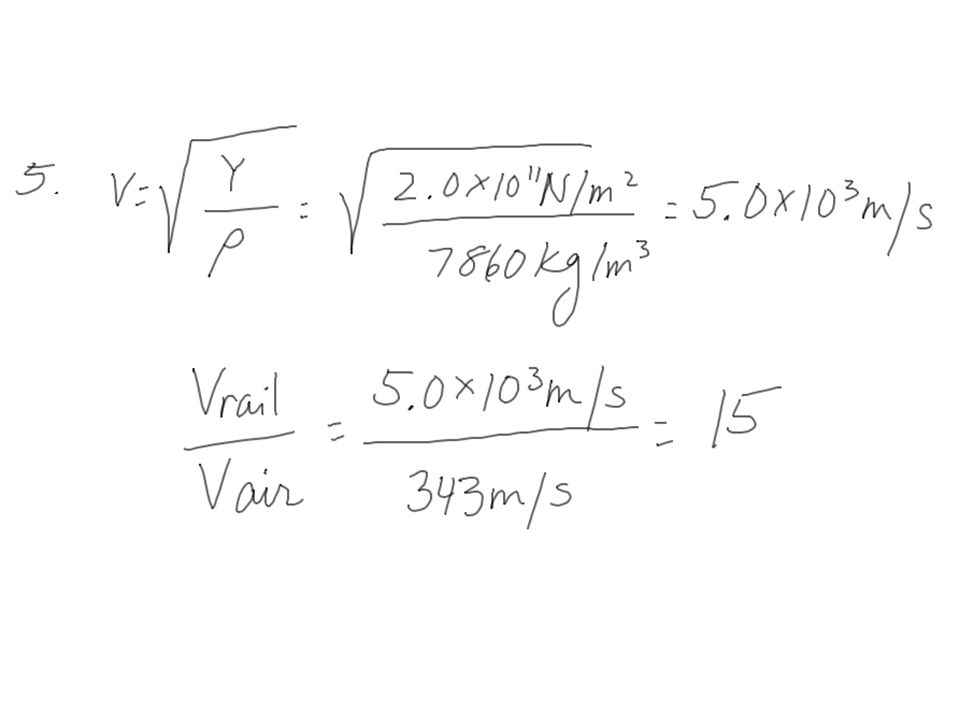 5. V = √(Y/ρ) = √(2.0×10¹¹N/m² / 7860kg/m³) = 5.0×10³m/s
Vrail/Vair = 5.0×10³m/s / 343m/s = 15